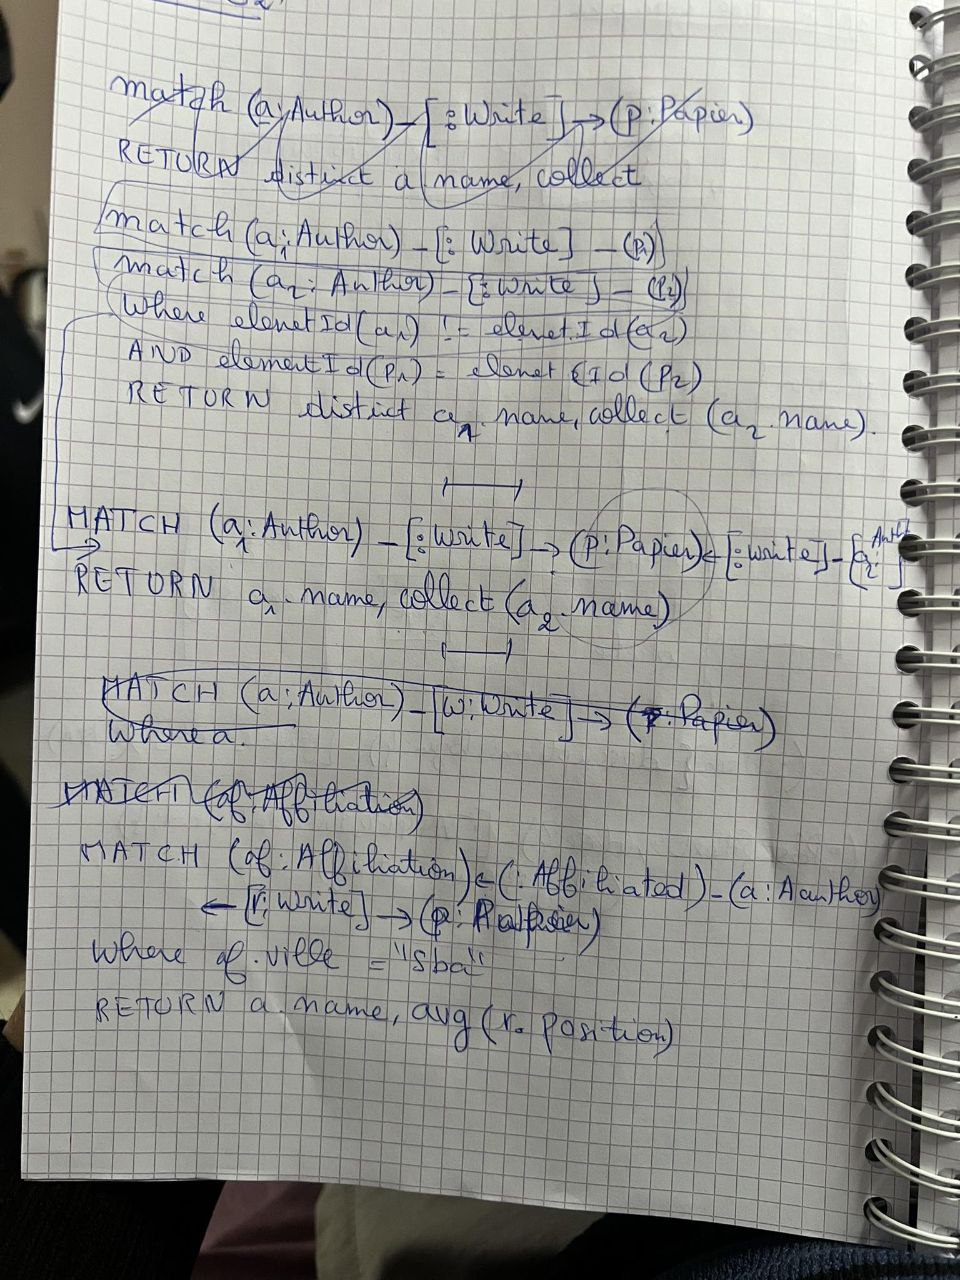 match (a:Author)-[:Write]->(p:Papier)
RETURN distinct a name, collect
match (a1:Author)-[:Write]-(p1)
match (a2:Author)-[:Write]-(p2)
Where elenetId(a1) != elenet.Id(a2)
AND elementId(p1) = elenet Id(p2)
RETURN distict a1.name, collect (a2.name).
MATCH (a1:Author)-[:Write]->(p:Papier)<-[:write]-[a2:Auth]
RETURN a1.name, collect(a2.name)
MATCH (a:Author)-[w:Write]->(p:Papier)
Where a.
MATCH (af:Affiliation)
MATCH (af:Affiliation)<-(:Affiliated)-(a:Aauthor)
<-[r:Write]->(p:Papier)
Where af.ville = "sba"
RETURN a.name, avg(r.position)